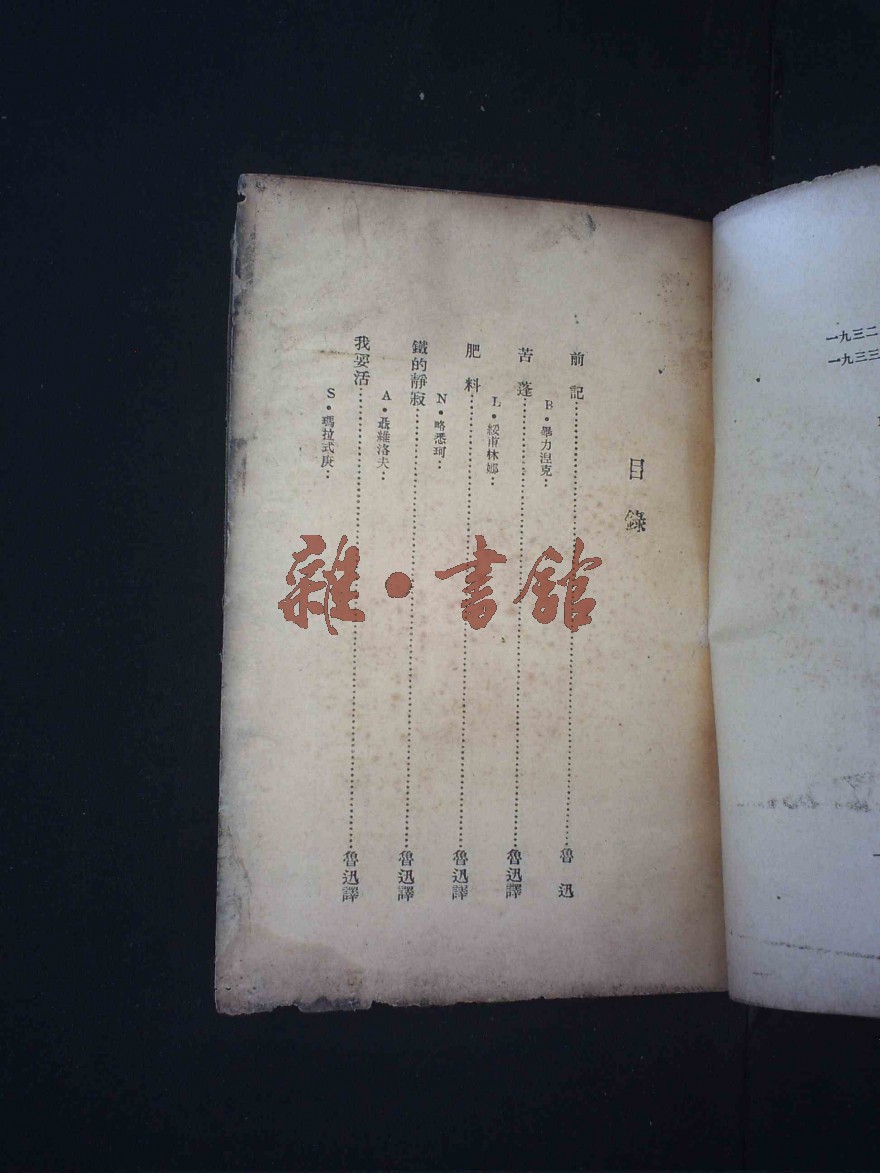 一九三二
一九三三
目錄
前記……魯迅
苦蓬……魯迅譯
B·畢力涅克：
肥料……魯迅譯
L·綏甫林娜：
鐵的靜寂……魯迅譯
N·略悉珂：
我要活……魯迅譯
A·聶維洛夫：
S·瑪拉式庚：
雜·書館